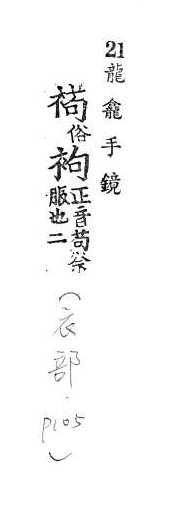 21龍龕手鏡
俗袧正音苟祭
服也二
(衣部.P105)